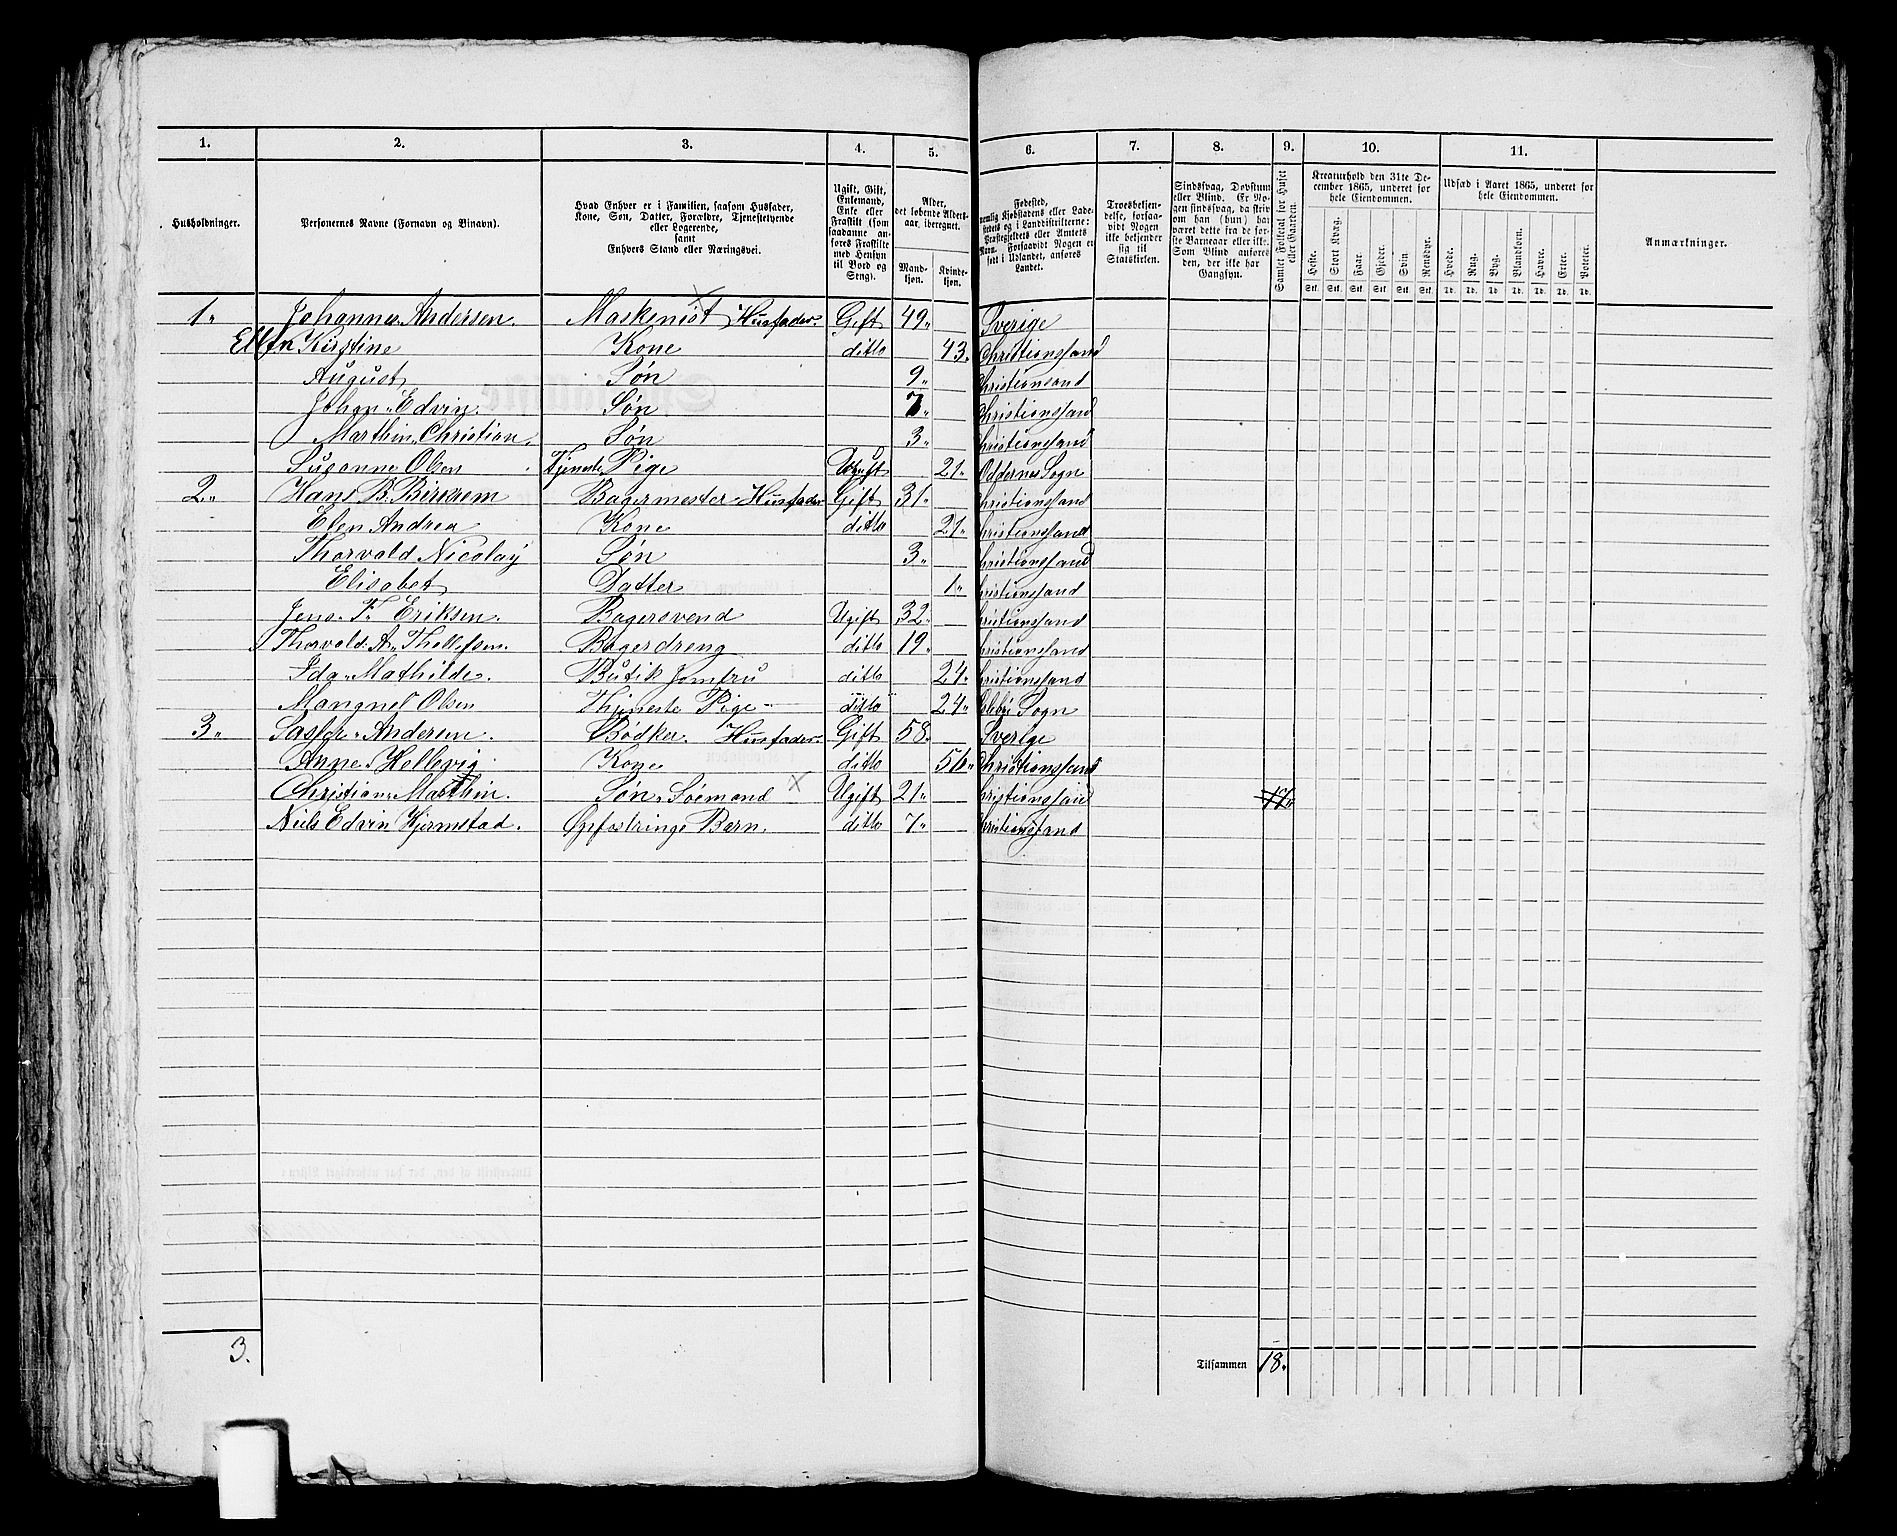 1. 2. 3. 4. 5. 6. 7. 8. 9. 10. 11.
Husholdninger.
Personernes Navne (Fornavn og Binavn).
Hvad Enhver er i Familien, saasom Husfader,
Kone, Søn, Datter, Forældre, Tjenestetyende
eller Logerende,
samt
Enhvers Stand eller Næringsvei.
Ugift, Gift,
Enkemand,
Enke eller
Fraskilt (som
saadanne an-
føres Fraskilte
med Hensyn
til Bord og
Seng).
Alder,
det løbende Alders-
aar iberegnet.
Mand-
kjøn.
Kvinde-
kjøn.
Fødested,
nemlig Kjøbstadens eller Lade-
stedets og i Landdistrikterne:
Præstegjeldets eller Amtets
Navn. Forsaavidt Nogen er
født i Udlandet, anføres
Landet.
Troesbekjen-
delse, forsaa-
vidt Nogen
ikke bekjender
sig til
Statskirken.
Sindssvag, Døvstum
eller Blind. Er No-
gen sindssvag, da skriv
om han (hun) har
været dette fra de før-
ste Barneaar eller ikke.
Som Blind anføres
den, der ikke har
Gangsyn.
Samlet Folketal for Huset
eller Gaarden.
Kreaturhold den 31te De-
cember 1865, underet for
hele Eiendommen.
Heste. Stort Kvæg. Faar. Gjeder. Svin. Rensdyr.
Stk. Stk. Stk. Stk. Stk. Stk.
Udsæd i Aaret 1865, underet for
hele Eiendommen.
Hvede. Rug. Byg. Blandkorn. Havre. Erter. Poteter.
Td. Td. Td. Td. Td. Td. Td.
Anmærkninger.
1. Johannes Andersen. Maskenist Husfader. Gift 49 Sverige
Ellen Kirstine Kone ditto 43. Christiansand
August Søn 9 Christiansand
Johan Edvin. Søn 7 Christiansand
Marthin Christian. Søn 3 Christiansand
Susanne Olsen Tjeneste Pige Ugift 21 Oddernes Sogn
2. Hans B. Husfader Bagermester Gift 31 Christiansand
Elen Andrea Kone ditto 21 Christiansand
Thorvald Nicolay Søn 3 Christiansand
Elisabet Datter 1 Christiansand
Jens F. Eriksen. Bagersvend Ugift 32 Christiansand
Thorvald A. Thellefsen. Bagerdreng ditto 19 Christiansand
Ida Mathilde. Butik Jomfru ditto 24 Christiansand
Olsen Thjeneste Pige ditto 24 Sogn
3. Andersen. Bødker. Husfader. Gift 58. Sverige
Anne Hellevig Kone ditto 56 Christiansand
Christian Marthin. Søn Søemand Ugift 21 Christiansand
Niels Edvin Hjermstad. Opfostrings Barn. ditto 7 Christiansand
3. Tilsammen 18.